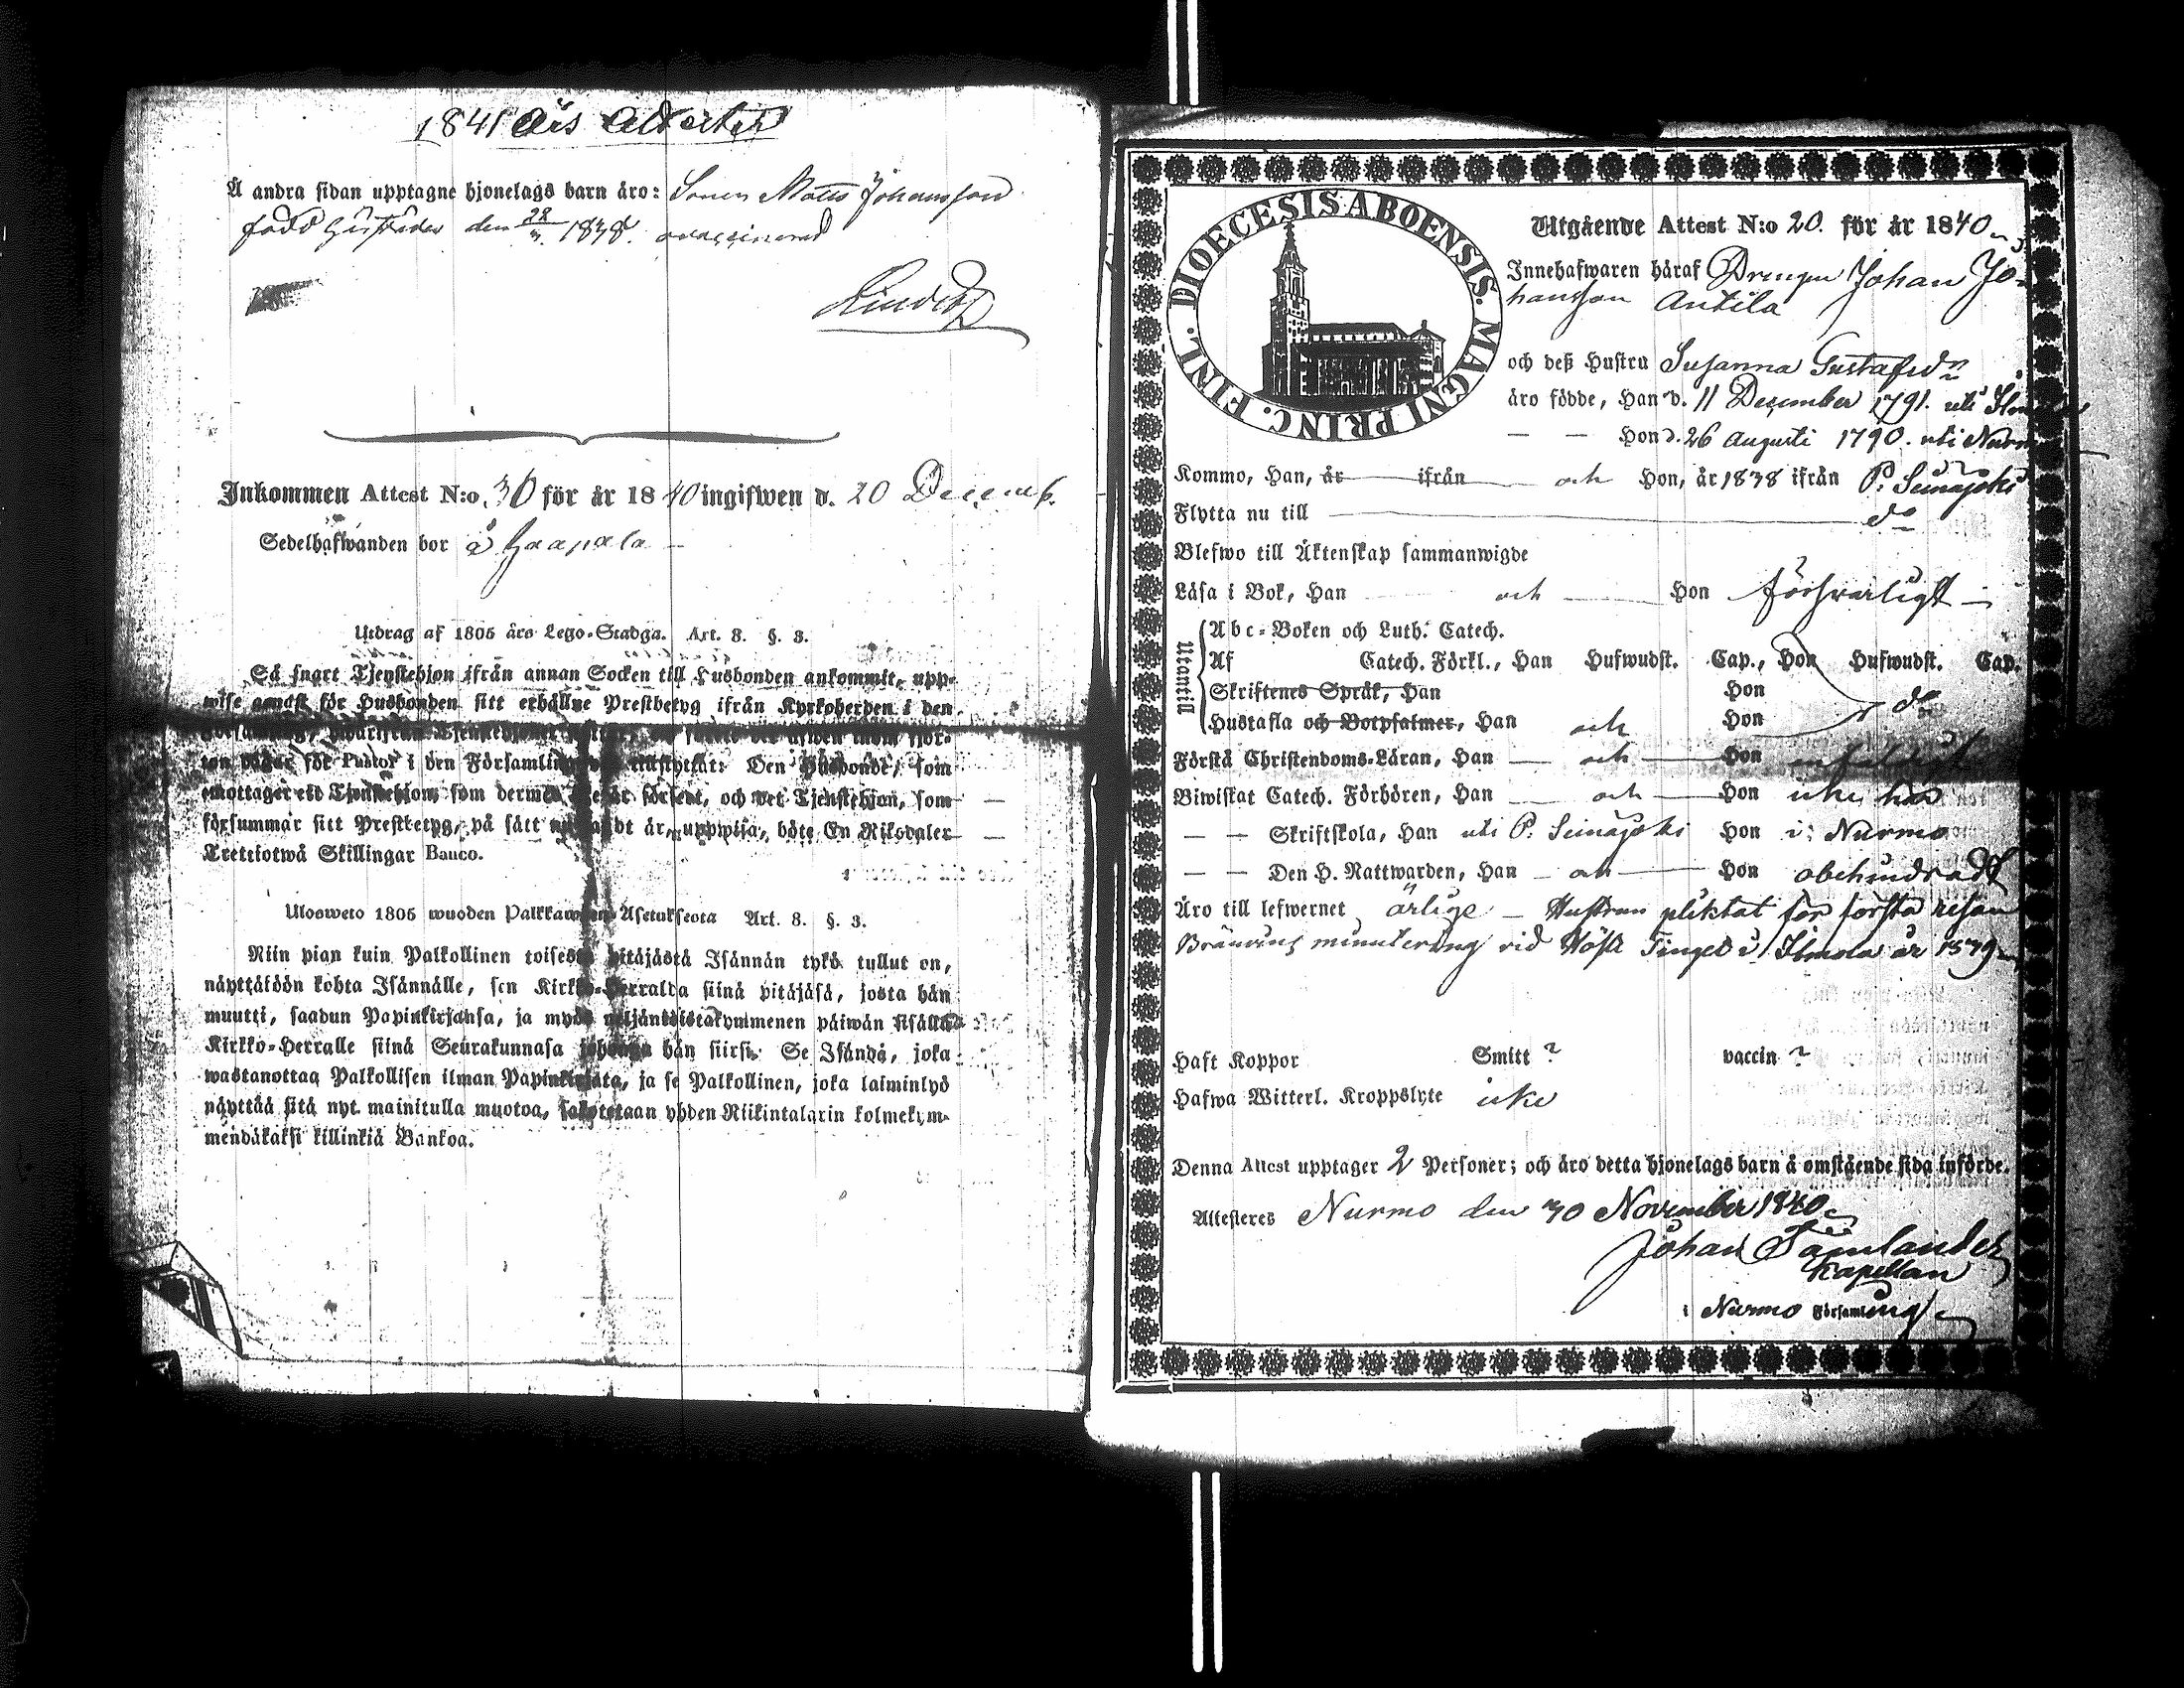 1841 Års Attester
Å andra sidan upptagne hjonelags barn äro: Sonen Matts Johansson
född härstädes den 28/3. 1838. ovaccinerad
Inkommen Attest N:o 30 för år 1840 ingifwen d. 20 Decemb.
Sedelhafwanden bor å Haapala
Utdrag af 1805 års Lego-Stadga. Art. 8. §. 3.
Så snart Tjenstehjon ifrån annan Socken till Husbonden ankommit, upp-
wise genast för Husbonden sitt erhållne Prestbetyg ifrån Kyrkoherden i den
ton dagar för Pastor i den Församling
emottager ett Tjenstehjon, som dermed ej är försedt, och det Tjenstehjon, som
försummar sitt Prestbetyg, på sätt nu sagdt är, uppwisa, böte En Riksdaler
Trettiotwå Skillingar Banco.
Ulosweto 1805 wuoden Palkkawäen Asetuksesta Art. 8. §. 3.
Niin pian kuin Palkollinen toisesta pitäjästä Isännän tykö tullut on,
näyttäköön kohta Isännälle, sen Kirkko-Herralda siinä pitäjäsä, josta hän
muutti, saadun Papinkirjansa, ja myös neljäntoistakymmenen päiwän sisällä
Kirkko-Herralle siinä Seurakunnasa johonga hän siirsi. Se Isändä, joka
wastanottaa Palkollisen ilman Papinkirjata, ja se Palkollinen, joka laiminlyö
näyttää sitä nyt mainitulla muotoa, sakotetaan yhden Riikintalarin kolmekym-
mendäkaksi killinkiä Bankoa.
DIOECESIS ABOENSIS. MAGNI PRINC. FINL.
Utgående Attest N:o 20. för år 1840
Innehafwaren häraf Drengen Johan Jo-
hansson Antila
och deß Hustru Susanna Gustafsdr
äro födde, Han d. 11 December 1791. uti
— — Hon d. 26 Augusti 1790. uti Nurmo
Kommo, Han, år ifrån och Hon, år 1838 ifrån P. Seinäjoki
Flytta nu till do
Blefwo till Äktenskap sammanwigde
Läsa i Bok, Han och Hon försvarligt
Utantill
Abc-Boken och Luth. Catech.
Af Catech. Förkl., Han Hufwudst. Cap., Hon Hufwudst. Cap.
Skriftenes Språk, Han Hon
Hustafla och Botpsalmer, Han och Hon do
Förstå Christendoms-Läran, Han och Hon enfaldigt
Biwistat Catech. Förhören, Han och Hon icke här
— — Skriftskola, Han uti P. Seinäjoki Hon i: Nurmo
— — Den H. Nattwarden, Han och Hon obehindradt
Äro till lefwernet ärlige — Hustrun pliktat för första resan
Bränvins minutering vid Höste Tinget i Ilmola år 1839
Haft Koppor Smitt ? vaccin ?
Hafwa Witterl. Kroppslyte icke
Denna Attest upptager 2 Personer; och äro detta hjonelags barn å omstående sida införde.
Attesteres Nurmo den 30 November 1840.
Johan
Kapellan
i Nurmo Församling